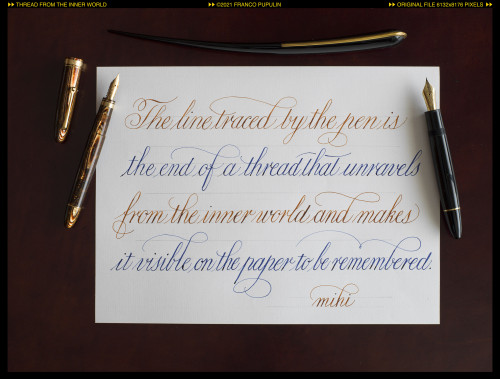 THREAD FROM THE INNER WORLD
©2021 FRANCO PUPULIN
ORIGINAL FILE 6132x8176 PIXELS
The line traced by the pen is
the end of a thread that unravels
from the inner world and makes
it visible on the paper to be remembered.
mihi